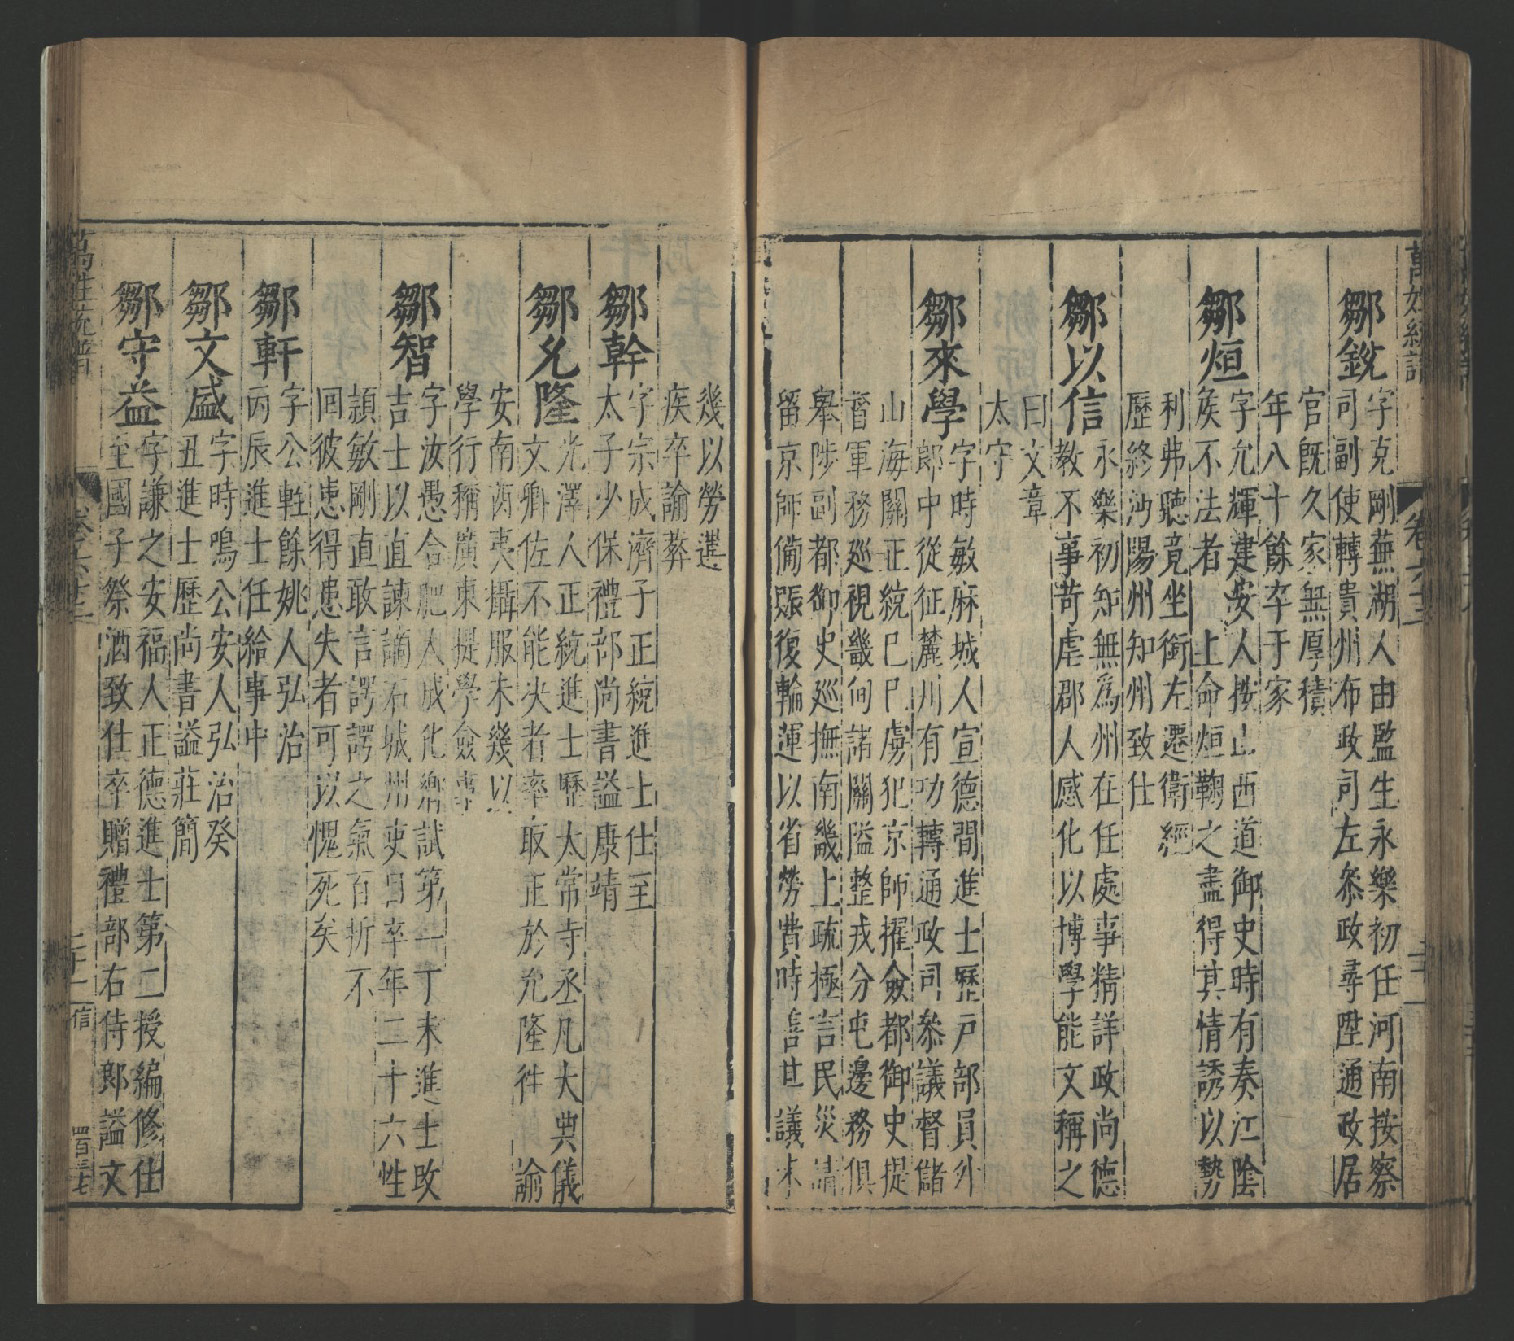 萬姓統譜 卷六十二
鄒銳
字克剛蕪湖人由監生永樂初任河南按察
司副使轉貴州布政司左叅政尋陞通政居
官旣久家無厚積
年八十餘卒于家
鄒烜
字允輝建安人按山西道御史時有奏江陰
矦不法者 上命烜鞫之盡得其情誘以勢
利弗聽竟坐銜左遷衛經
歷終沔陽州知州致仕
鄒以信
永樂初知無爲州在任處事精詳政尚德
教不事苛虐郡人感化以博學能文稱之
曰文章
太守
鄒來學
字時敏麻城人宣德間進士歷戸部員外
郎中從征麓川有功轉通政司叅議督儲
山海關正統己巳虜犯京師擢僉都御史提
督軍務廵視畿甸諸關隘整戎分屯邊務俱
舉陟副都御史廵撫南畿上疏極言民災請
留京師備賑復輪運以省勞費時善其議未
幾以勞遘
疾卒諭葬
鄒幹
字宗成濟子正統進士仕至
太子少保禮部尚書謚康靖
鄒允隆
光澤人正統進士歷太常寺丞凡大典儀
文卿佐不能决者率取正於允隆徃 諭
安南西夷攝服未幾以
學行稱廣東提學僉事
鄒智
字汝愚合肥人成化鄉試第一丁未進士改
吉士以直諫謫石城州吏目卒年二十六性
頴敏剛直敢言諤諤之氣百折不
回彼患得患失者可以愧死矣
鄒軒
字公輊餘姚人弘治
丙辰進士任給事中
鄒文盛
字時鳴公安人弘治癸
丑進士歷尚書謚莊簡
鄒守益
字謙之安福人正德進士第二授編修仕
至國子祭酒致仕卒贈禮部右侍郎謚文
萬姓統譜 卷六十二 二十一 信 四百三七